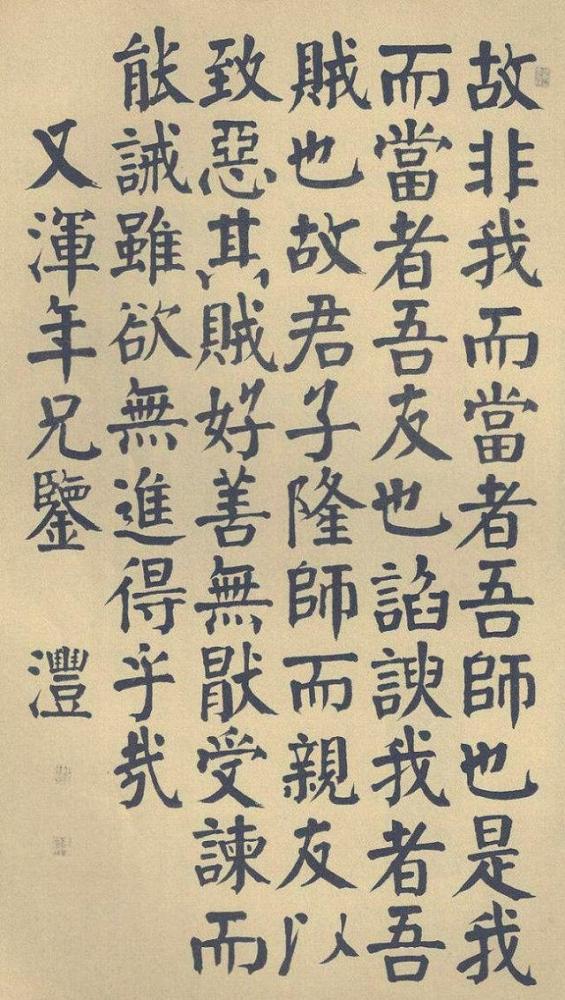 故非我而當者吾師也是我
而當者吾友也諂諛我者吾
賊也故君子隆師而親友以
致惡其賊好善無厭受諫而
能誡雖欲無進得乎哉
又渾年兄鑒 灃